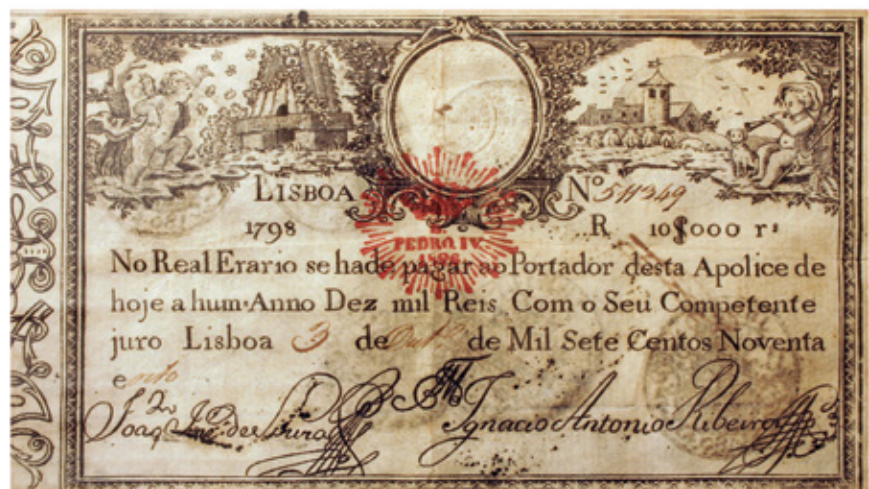 LISBOA Nº 511349
1798 R 10$000 rs
PEDRO IV
1826
No Real Erario se hade pagar ao Portador desta Apolice de
hoje a hum Anno Dez mil Reis Com o Seu Competente
juro Lisboa 3 de Outº de Mil Sete Centos Noventa
e outo
Ignacio Antonio Ribeiro